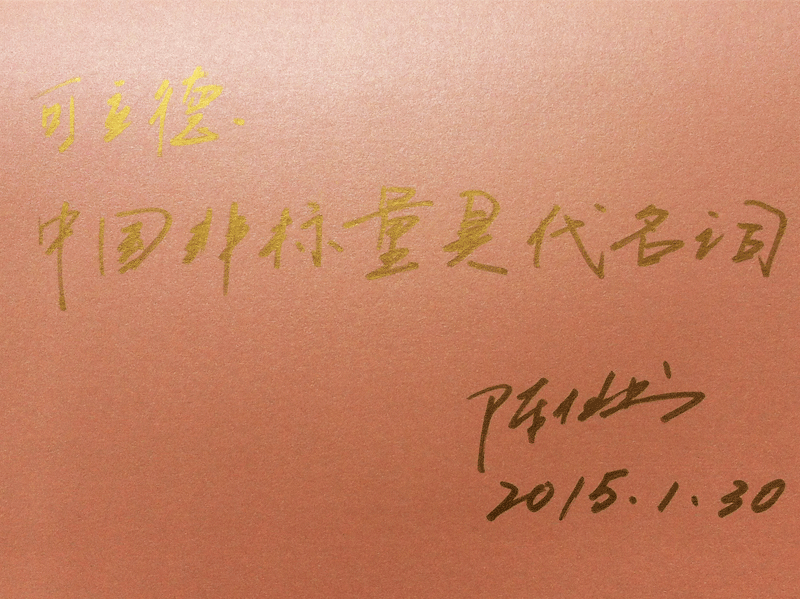 可立德.
中国非标量具代名词
陈
2015.1.30